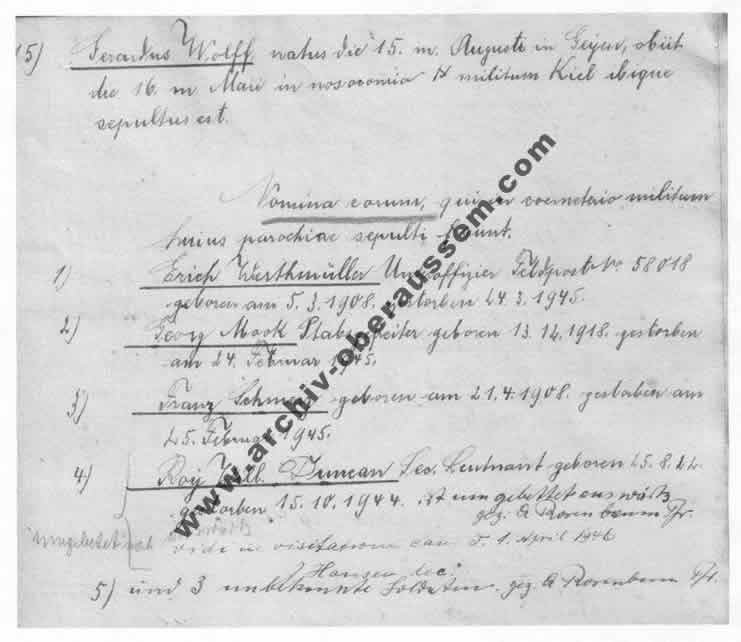 15) Gerardus Wolff natus die 15. m. Augusti in Geijen, obiit
die 16. m. Maii in nosocomio militum Kiel ibique
sepultus est.
Nomina eorum, qui in coemeterio militum
huius parochiae sepulti sunt.
1) Erich Werthmüller Unteroffizier Feldpost No 58018
geboren am 5.3.1908. gestorben 24.3.1945.
2) Georg Mook Stabsgefreiter geboren 13.12.1918. gestorben
am 24. Februar 1945.
3) Franz geboren am 21.4.1908. gestorben am
25. Februar 1945.
4) Roij Duncan Leutnant geboren 25.8.22
gestorben 15.10.1944. ist umgebettet auswärts
gez. A Rosenbaum Pfr.
Umgebettet nach
vidi in visitatione can. 1. April 1946
Hansen dec.
5) und 3 unbekannte Soldaten. gez. A Rosenbaum Pfr.
www.archiv-oberaussem.com